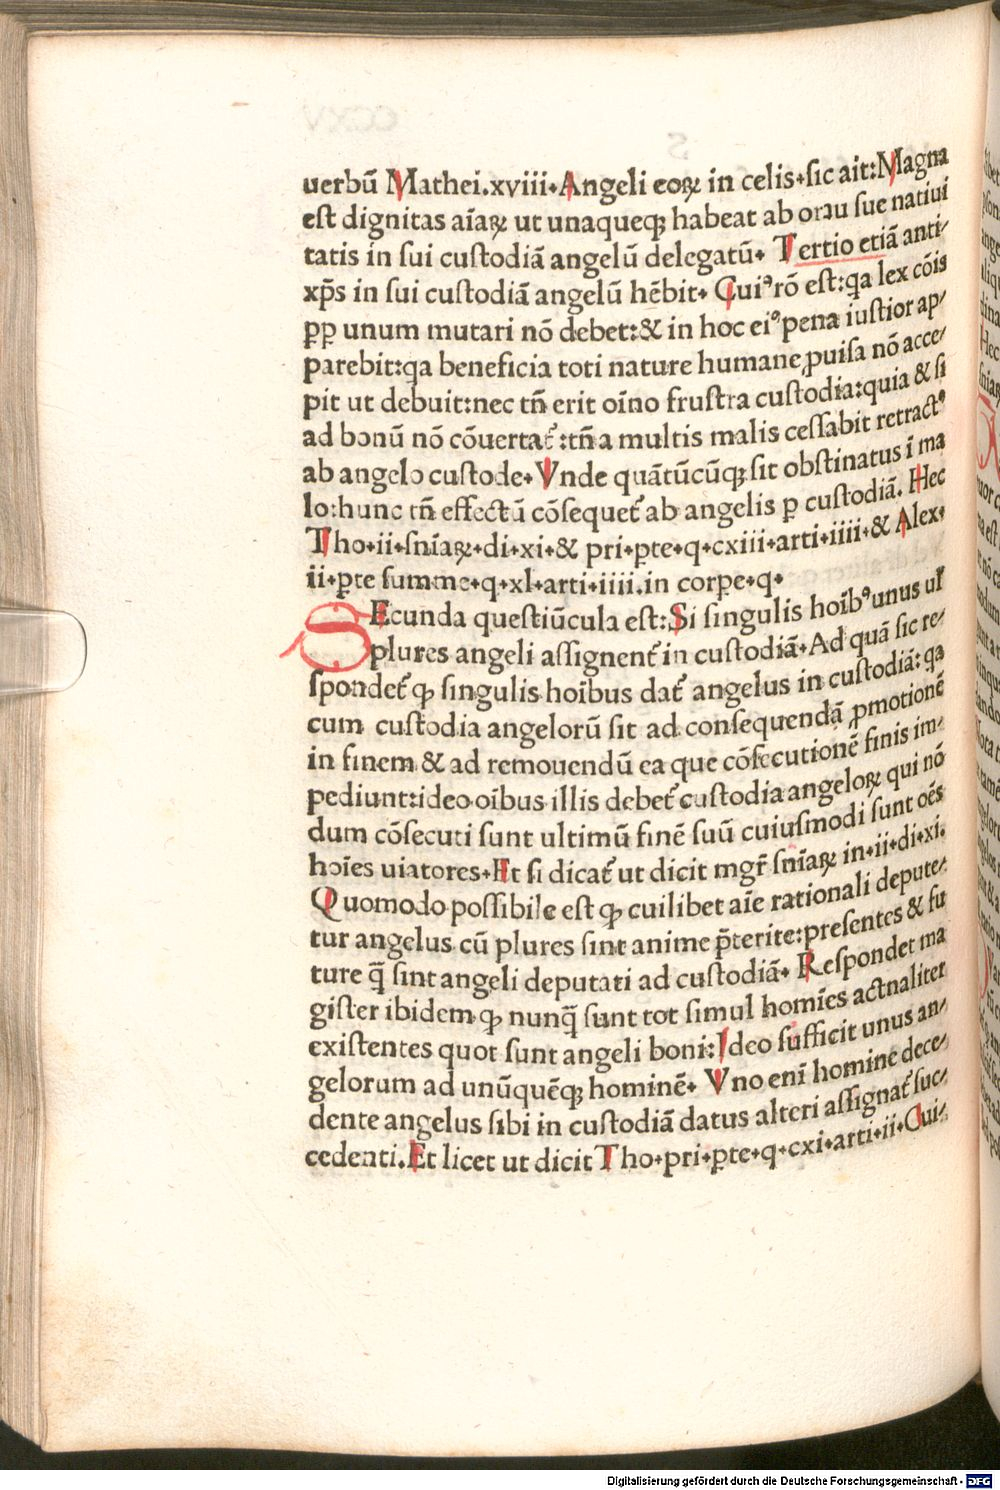 uerbū Mathei.xviii. Angeli eoꝝ in celis. sic ait: Magna
est dignitas aīaꝝ ut unaqueqꝫ habeat ab ortu sue natiui
tatis in sui custodiā angelū delegatū. Tertio etiā anti/
xp̄s in sui custodiā angelū hēbit. Cuiꝰ rō est: qa lex cōis
ꝓp unum mutari nō debet: & in hoc eiꝰ pena iustior ap/
parebit: qa beneficia toti nature humane ꝓuisa nō acce/
pit ut debuit: nec tn̄ erit oīno frustra custodia: quia & si
ad bonū nō cōuertat᷑: tn̄ a multis malis cessabit retractꝰ
ab angelo custode. Vnde quātūcūqꝫ sit obstinatus ī ma
lo: hunc tn̄ effectū cōsequet᷑ ab angelis ꝑ custodiā. Hec
Tho. ii. snīaꝝ. di. xi. & pri. ꝑte. q. cxiii. arti. iiii. & Alex.
ii. ꝑte summe. q. xl. arti. iiii. in corpe. q.
SEcunda questiūcula est: Si singulis hoībꝰ unus ul᷑
plures angeli assignent᷑ in custodiā. Ad quā sic re/
spondet᷑ ꝙ singulis hoībus dat᷑ angelus in custodiā: qa
cum custodia angelorū sit ad consequendā ꝓmotionē
in finem & ad remouendū ea que cōsecutionē finis im/
pediunt: ideo oībus illis debet᷑ custodia angeloꝝ qui nō
dum cōsecuti sunt ultimū finē suū cuiusmodi sunt oēs
hoīes uiatores. Et si dicat᷑ ut dicit mgr̄ snīaꝝ in. ii. di. xi.
Quomodo possibile est ꝙ cuilibet aīe rationali depute/
tur angelus cū plures sint anime p̄terite: presentes & fu
ture q̄ sint angeli deputati ad custodiā. Respondet ma
gister ibidem ꝙ nunq̄ sunt tot simul homīes actnaliter
existentes quot sunt angeli boni: Ideo sufficit unus an/
gelorum ad unūquēqꝫ hominē. Vno enī homine dece/
dente angelus sibi in custodiā datus alteri assignat᷑ suc/
cedenti. Et licet ut dicit Tho. pri. ꝑte. q. cxi. arti. ii. Cui/
Digitalisierung gefördert durch die Deutsche Forschungsgemeinschaft - DFG